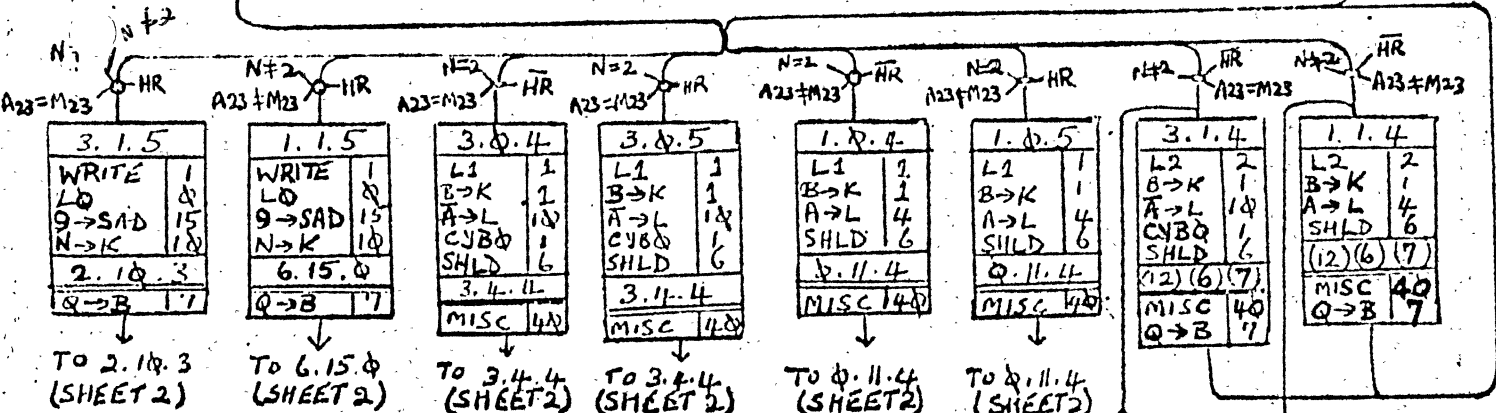 N≠2
HR
A23=M23
3.1.5
WRITE 1
LQ Ø
9→SAD 15
N→K 1Ø
2.1Ø.3
Q→B 7
TO 2.1Ø.3
(SHEET 2)
N≠2
HR
A23≠M23
1.1.5
WRITE 1
LQ Ø
9→SAD 15
N→K 1Ø
6.15.Ø
Q→B 7
TO 6.15.Ø
(SHEET 2)
N=2
H̅R̅
A23=M23
3.Ø.4
L1 1
B→K 1
A̅→L 1Ø
CYBØ 1
SHLD 6
3.4.4
MISC 4Ø
TO 3.4.4
(SHEET 2)
N=2
HR
A23=M23
3.Ø.5
L1 1
B→K 1
A̅→L 1Ø
CYBØ 1
SHLD 6
3.4.4
MISC 4Ø
TO 3.4.4
(SHEET 2)
N=2
H̅R̅
A23≠M23
1.Ø.4
L1 1
B→K 1
A→L 4
SHLD 6
Ø.11.4
MISC 4Ø
TO Ø.11.4
(SHEET 2)
N=2
HR
A23≠M23
1.Ø.5
L1 1
B→K 1
A→L 4
SHLD 6
Ø.11.4
MISC 4Ø
TO Ø.11.4
(SHEET 2)
N≠2
H̅R̅
A23=M23
3.1.4
L2 2
B→K 1
A̅→L 1Ø
CYBØ 1
SHLD 6
(12)(6)(7)
MISC 4Ø
Q→B 7
N≠2
H̅R̅
A23≠M23
1.1.4
L2 2
B→K 1
A→L 4
SHLD 6
(12)(6)(7)
MISC 4Ø
Q→B 7